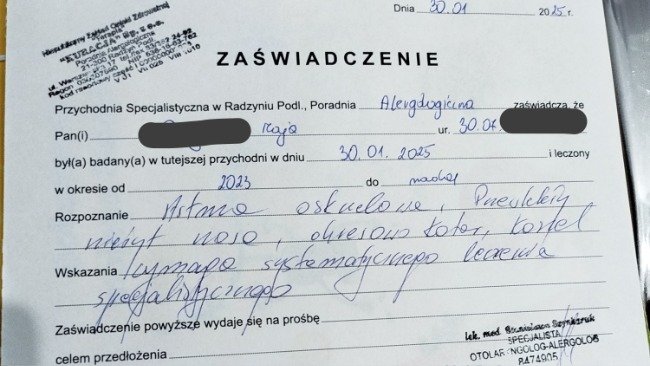 Dnia 30.01 2025 r.
Niepubliczny Zakład Opieki Zdrowotnej
"KURACJA" Sp. z o.o.
Poradnia Alergologiczna
ZAŚWIADCZENIE
Przychodnia Specjalistyczna w Radzyniu Podl., Poradnia Alergologiczna zaświadcza, że
Pan(i) Maja ur. 30.07.
był(a) badany(a) w tutejszej przychodni w dniu 30.01.2025 i leczony
w okresie od 2023 do nadal
Rozpoznanie Astma oskrzelowa, Przewlekły
nieżyt nosa, okresowo katar, kaszel
Wskazania wymaga systematycznego leczenia
specjalistycznego
Zaświadczenie powyższe wydaje się na prośbę
celem przedłożenia
lek. med.
SPECJALISTA
OTOLARYNGOLOG-ALERGOLOG
8474905